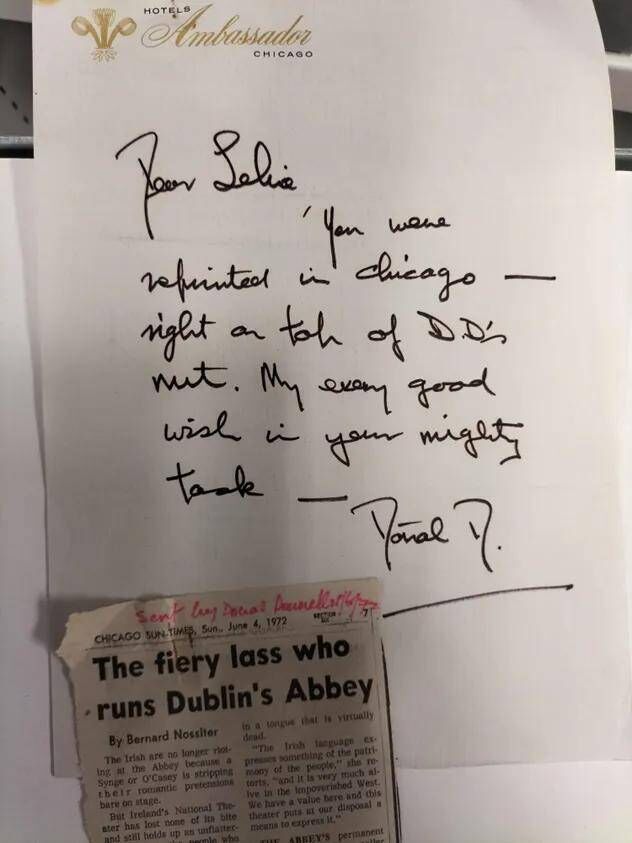 HOTELS
Ambassador
CHICAGO
Dear Lelia
You were
reprinted in Chicago —
right on top of D.D's
nut. My every good
wish in your mighty
task —
Dónal D.
sent by Donal Donnelly
CHICAGO SUN-TIMES, Sun., June 4, 1972
The fiery lass who
runs Dublin's Abbey
By Bernard Nossiter
The Irish are no longer riot-
ing at the Abbey because a
Synge or O'Casey is stripping
their romantic pretensions
bare on stage.
But Ireland's National The-
ater has lost none of its bite
and still holds up an unflatter-
people who
in a tongue that is virtually
dead.
"The Irish language ex-
presses something of the patri-
mony of the people," she re-
torts, "and it is very much al-
ive in the impoverished West.
We have a value here and this
theater puts at our disposal a
means to express it."
THE ABBEY'S permanent